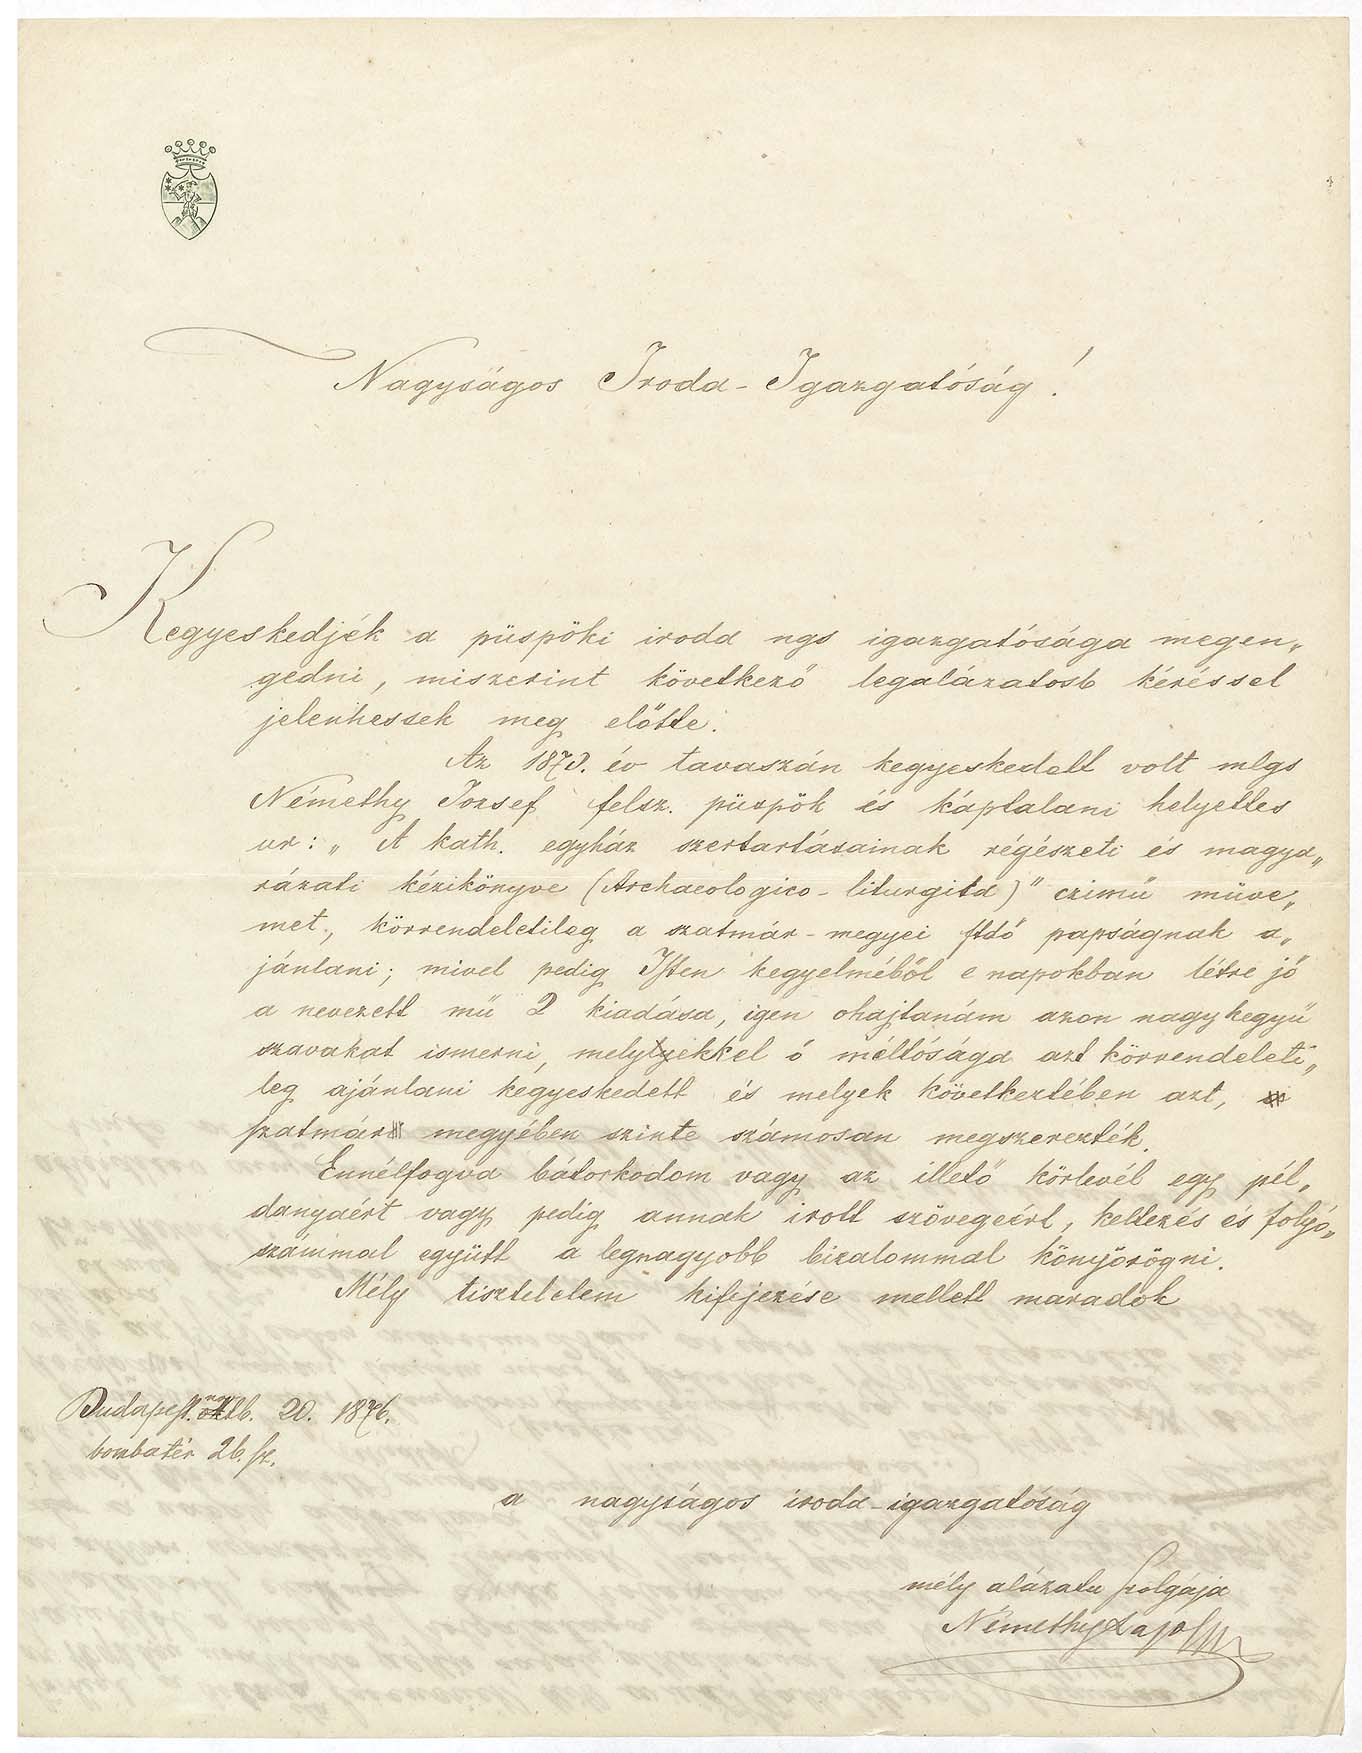 Nagyságos Iroda-Igazgatóság!
Kegyeskedjék a püspöki iroda ngs igazgatósága megen„
gedni, miszerint következő legalázatosb kéréssel
jelenhessek meg előtte.
Az 1873. év tavaszán kegyeskedett volt mlgs
Némethy József felsz. püspök és káptalani helyettes
ur: „A kath. egyház szertartásainak régészeti és magya„
rázati kézikönyve (Archaeologico-liturgika)" czimű műve„
met, körrendeletileg a szatmár-megyei ftdő papságnak a„
jánlani; mivel pedig Isten kegyelméből e napokban létre jő
a nevezett mű 2 kiadása, igen ohajtanám azon nagykegyű
szavakat ismerni, melyekkel ő méltósága azt körrendeleti„
leg ajánlani kegyeskedett és melyek következtében azt,
szatmár megyében szinte számosan megszerezték.
Ennélfogva bátorkodom vagy az illető körlevél egy pél„
danyaért vagy pedig annak irott szövegeért, keltezés és folyó„
számmal együtt a legnagyobb bizalommal könyörögni.
Mély tisztelelem kifejezése mellett maradok
Budapest. nov. 20. 1876.
bombatér 26. sz.
a nagyságos iroda-igazgatóság
mély alázatu szolgája
Némethy Lajos